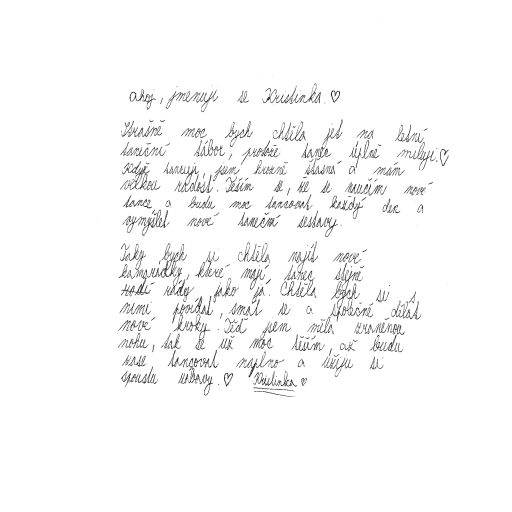 ahoj, jmenuji se Kristinka. ♡
Strašně moc bych chtěla jet na letní
taneční tábor, protože tanec úplně miluji. ♡
Když tancuji, jsem hrozně šťasná a mám
velkou radost. Těším se, že se naučím nové
tance a budu moc tancovat každý den a
vymýšlet nové taneční sestavy.
Taky bych si chtěla najít nové
kamarádky, které mají tanec stejně
rády jako já. Chtěla bych si s
nimi povídat, smát se a společně dělat
nové kroky. Teď jsem měla zraněnou
nohu, tak se už moc těším, až budu
zase tancovat naplno a užiju si
spoustu zábavy. ♡ Kristinka ♡